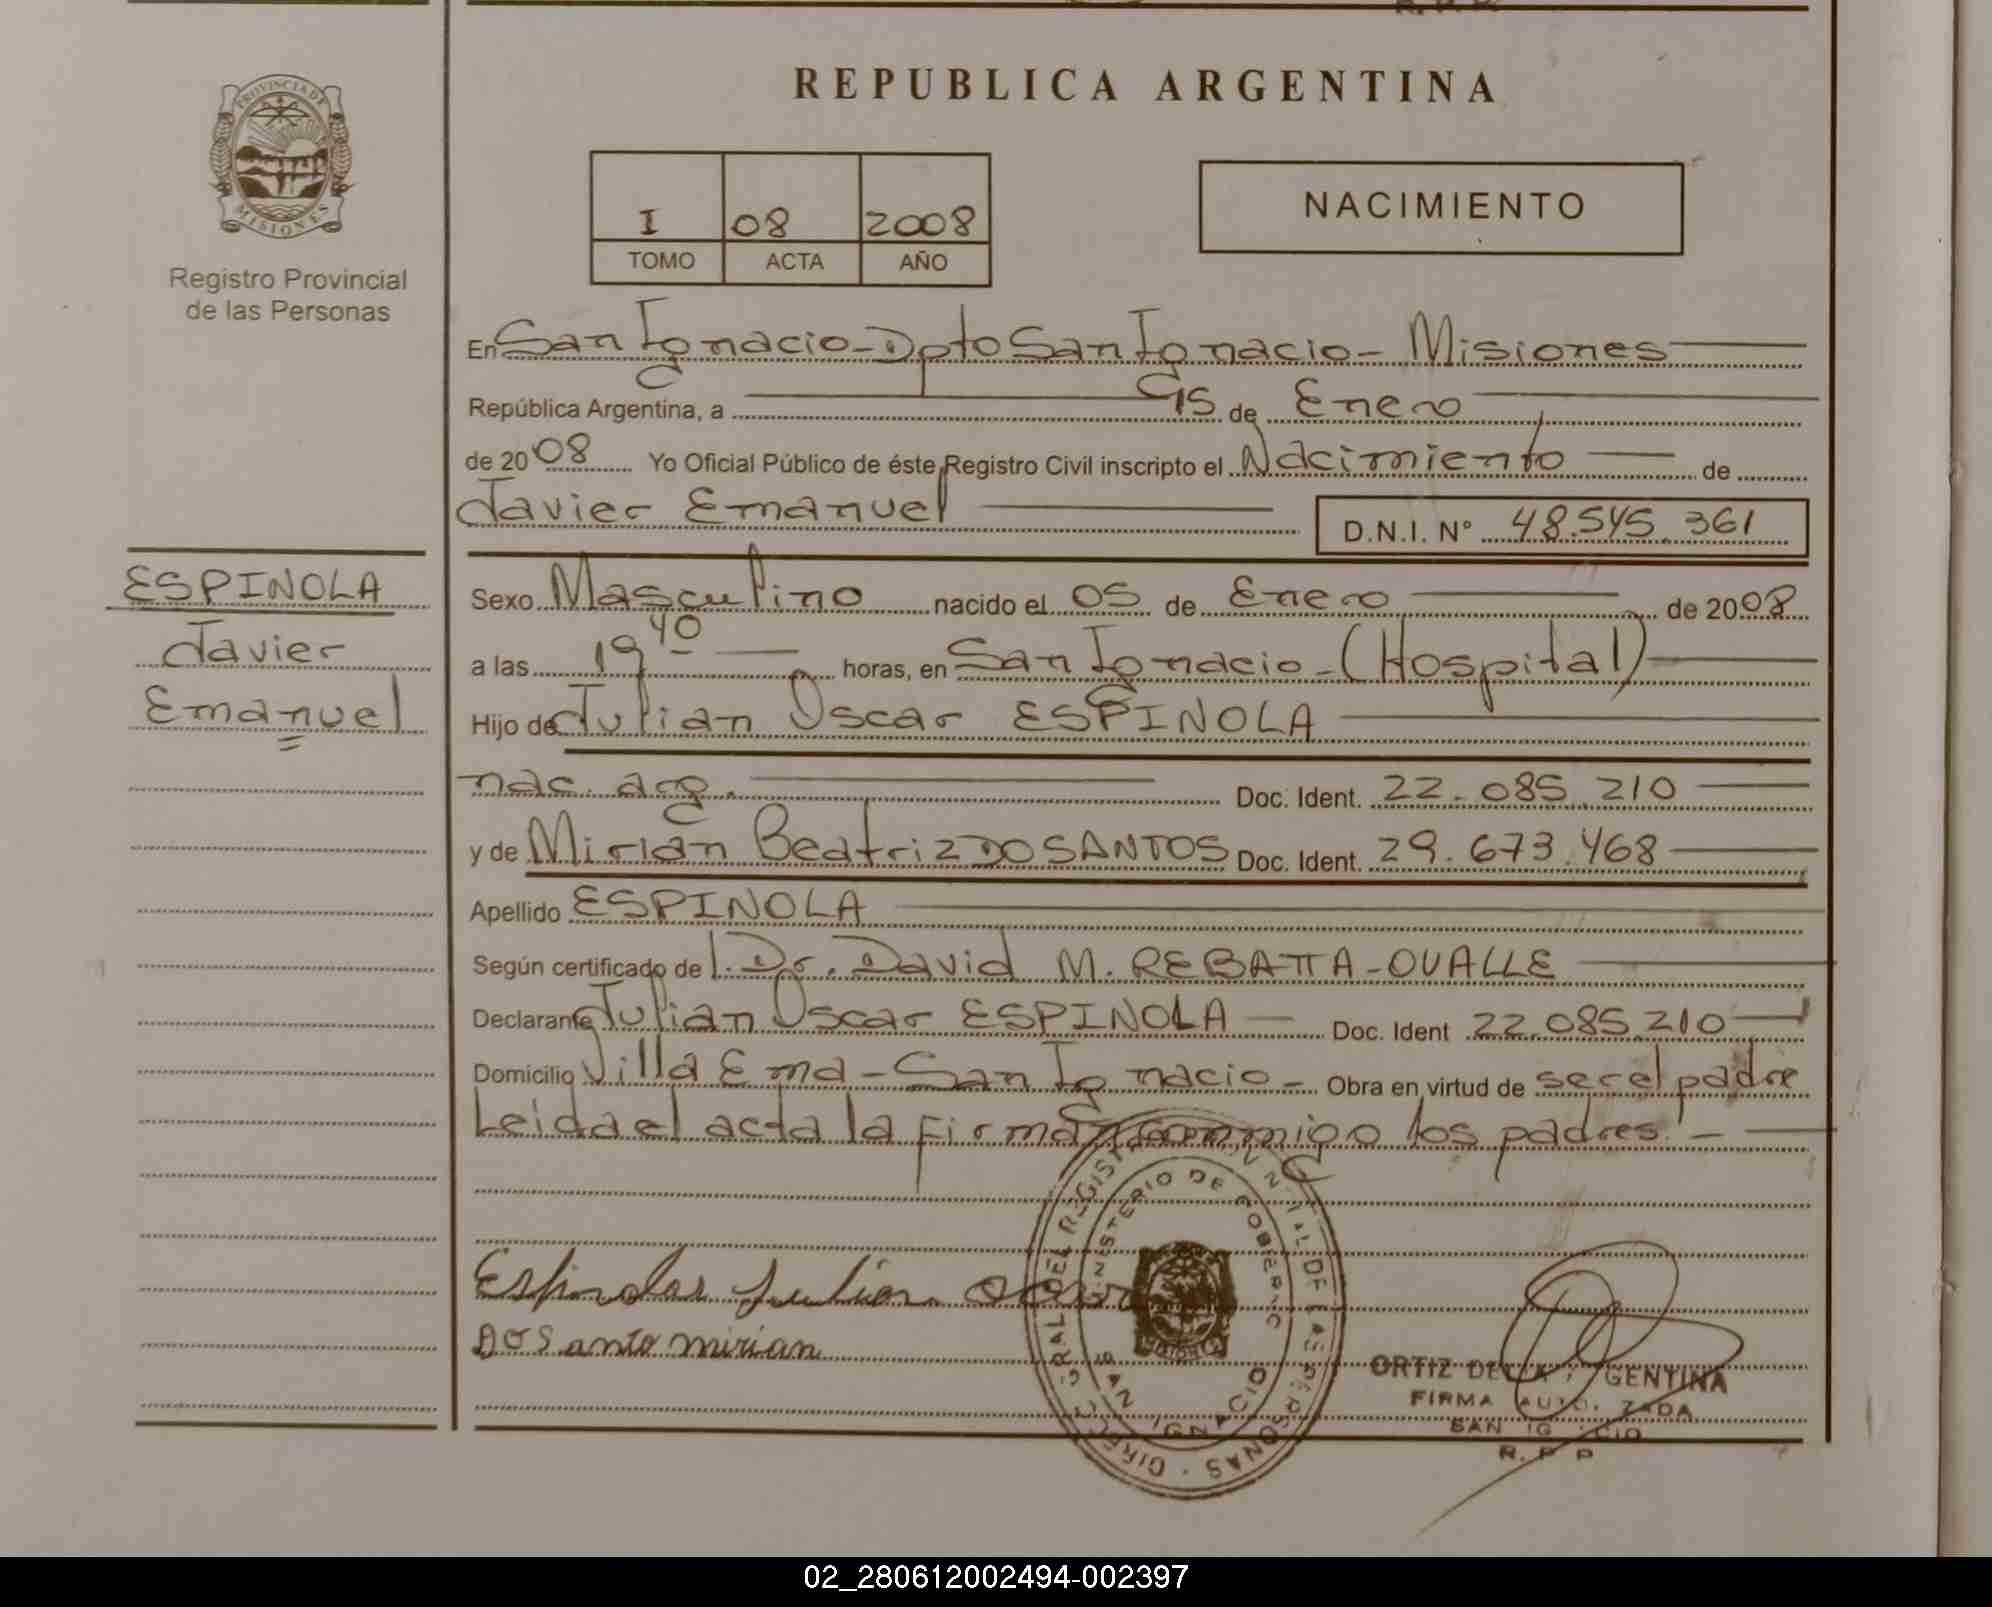 R. P. P.
REPUBLICA ARGENTINA
PROVINCIA DE
MISIONES
Registro Provincial
de las Personas
I 08 2008
TOMO ACTA AÑO
NACIMIENTO
En San Ignacio - Dpto San Ignacio - Misiones
República Argentina, a de Enero
de 2008 Yo Oficial Público de éste Registro Civil inscripto el Nacimiento de
Javier Emanuel
D.N.I. N° 48.545.361
ESPINOLA
Javier
Emanuel
Sexo Masculino nacido el 05 de Enero de 2008
a las 19 40 horas, en San Ignacio - (Hospital)
Hijo de Julian Oscar ESPINOLA
nac. arg. Doc. Ident. 22.085.210
y de Mirian Beatriz DO SANTOS Doc. Ident. 29.673.468
Apellido ESPINOLA
Según certificado de Dr. David M. REBATTA-OVALLE
Declarante Julian Oscar ESPINOLA Doc. Ident 22.085.210
Domicilio Villa Ema - San Ignacio - Obra en virtud de ser el padre
Leida el acta la firman conmigo los padres. -
Espindola Julian Oscar
DO Santo mirian
MINISTERIO DE GOBIERNO
SAN IGNACIO
DE LAS PERSONAS
ORTIZ DE GENTINA
FIRMA AUTORIZADA
SAN IGNACIO
R. P. P
02_280612002494-002397